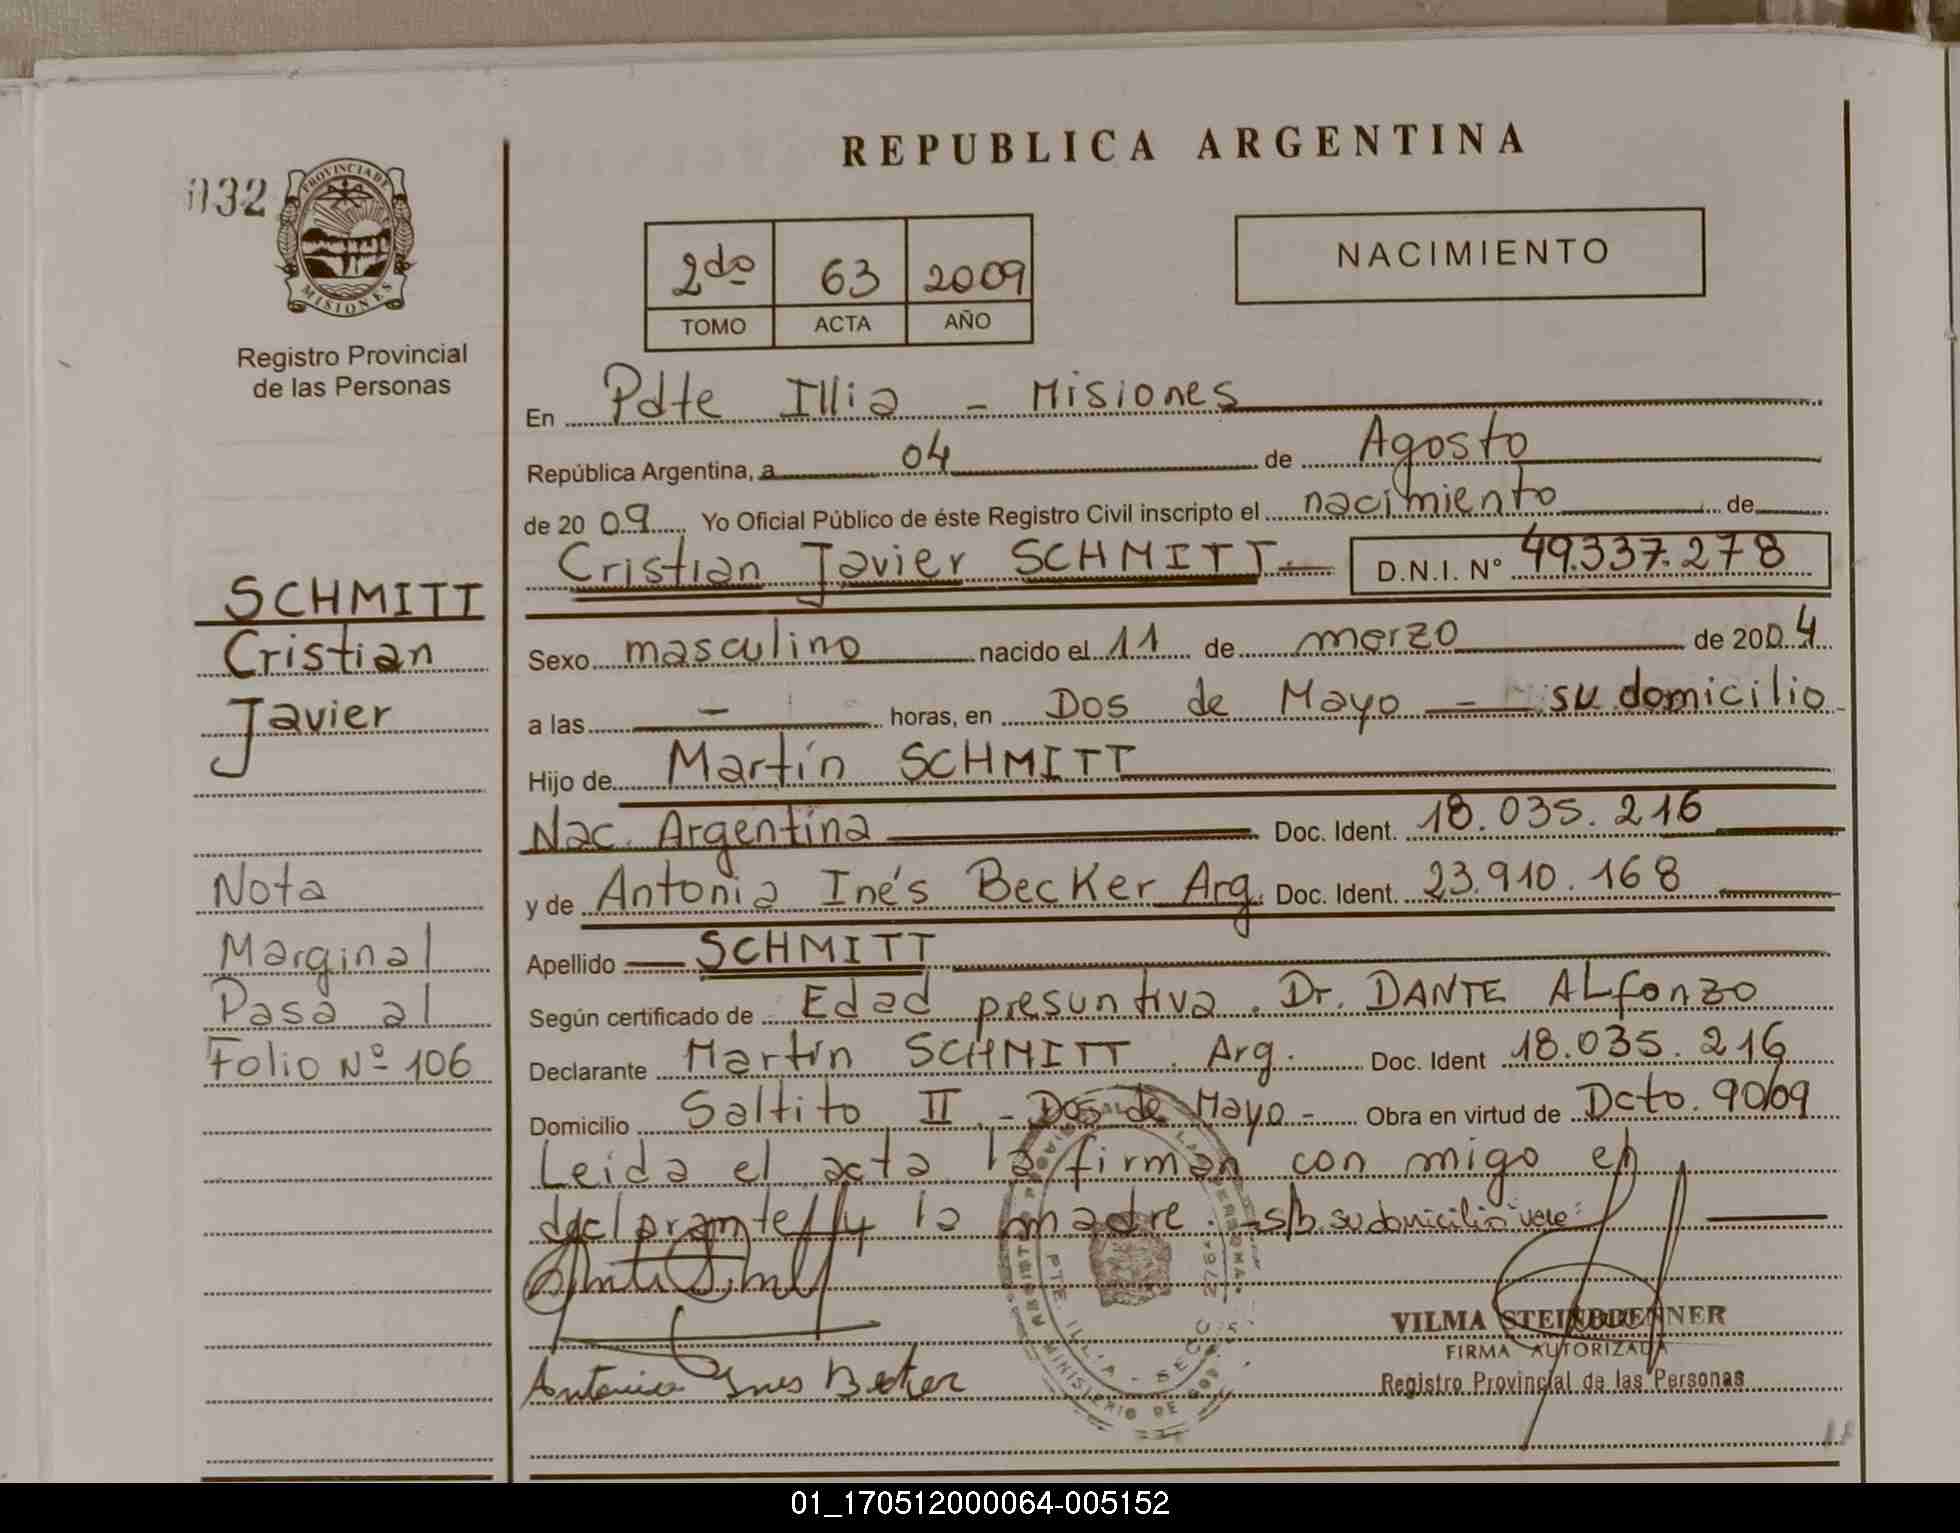 REPUBLICA ARGENTINA
032
PROVINCIA DE MISIONES
Registro Provincial
de las Personas
2do 63 2009
TOMO ACTA AÑO
NACIMIENTO
En Pdte Illia - Misiones
República Argentina, a 04 de Agosto
de 2009 Yo Oficial Público de éste Registro Civil inscripto el nacimiento de
Cristian Javier SCHMITT D.N.I. N° 49.337.278
Sexo masculino nacido el 11 de marzo de 2004
a las - horas, en Dos de Mayo - su domicilio
Hijo de Martín SCHMITT
Nac. Argentina Doc. Ident. 18.035.216
y de Antonia Inés Becker Arg. Doc. Ident. 23.910.168
Apellido SCHMITT
Según certificado de Edad presuntiva. Dr. DANTE ALfonzo
Declarante Martín SCHMITT. Arg. Doc. Ident 18.035.216
Domicilio Saltito II - Dos de Mayo - Obra en virtud de Dcto. 90/09
Leida el acta la firman con migo el
declarante y la madre. - s/b. su domicilio vale:
Antonia Ines Becker
VILMA STEINBRENNER
FIRMA AUTORIZADA
Registro Provincial de las Personas
PTE. ILLIA - SECC
MINISTERIO DE
SCHMITT
Cristian
Javier
Nota
Marginal
Pasa al
Folio Nº 106
01_170512000064-005152